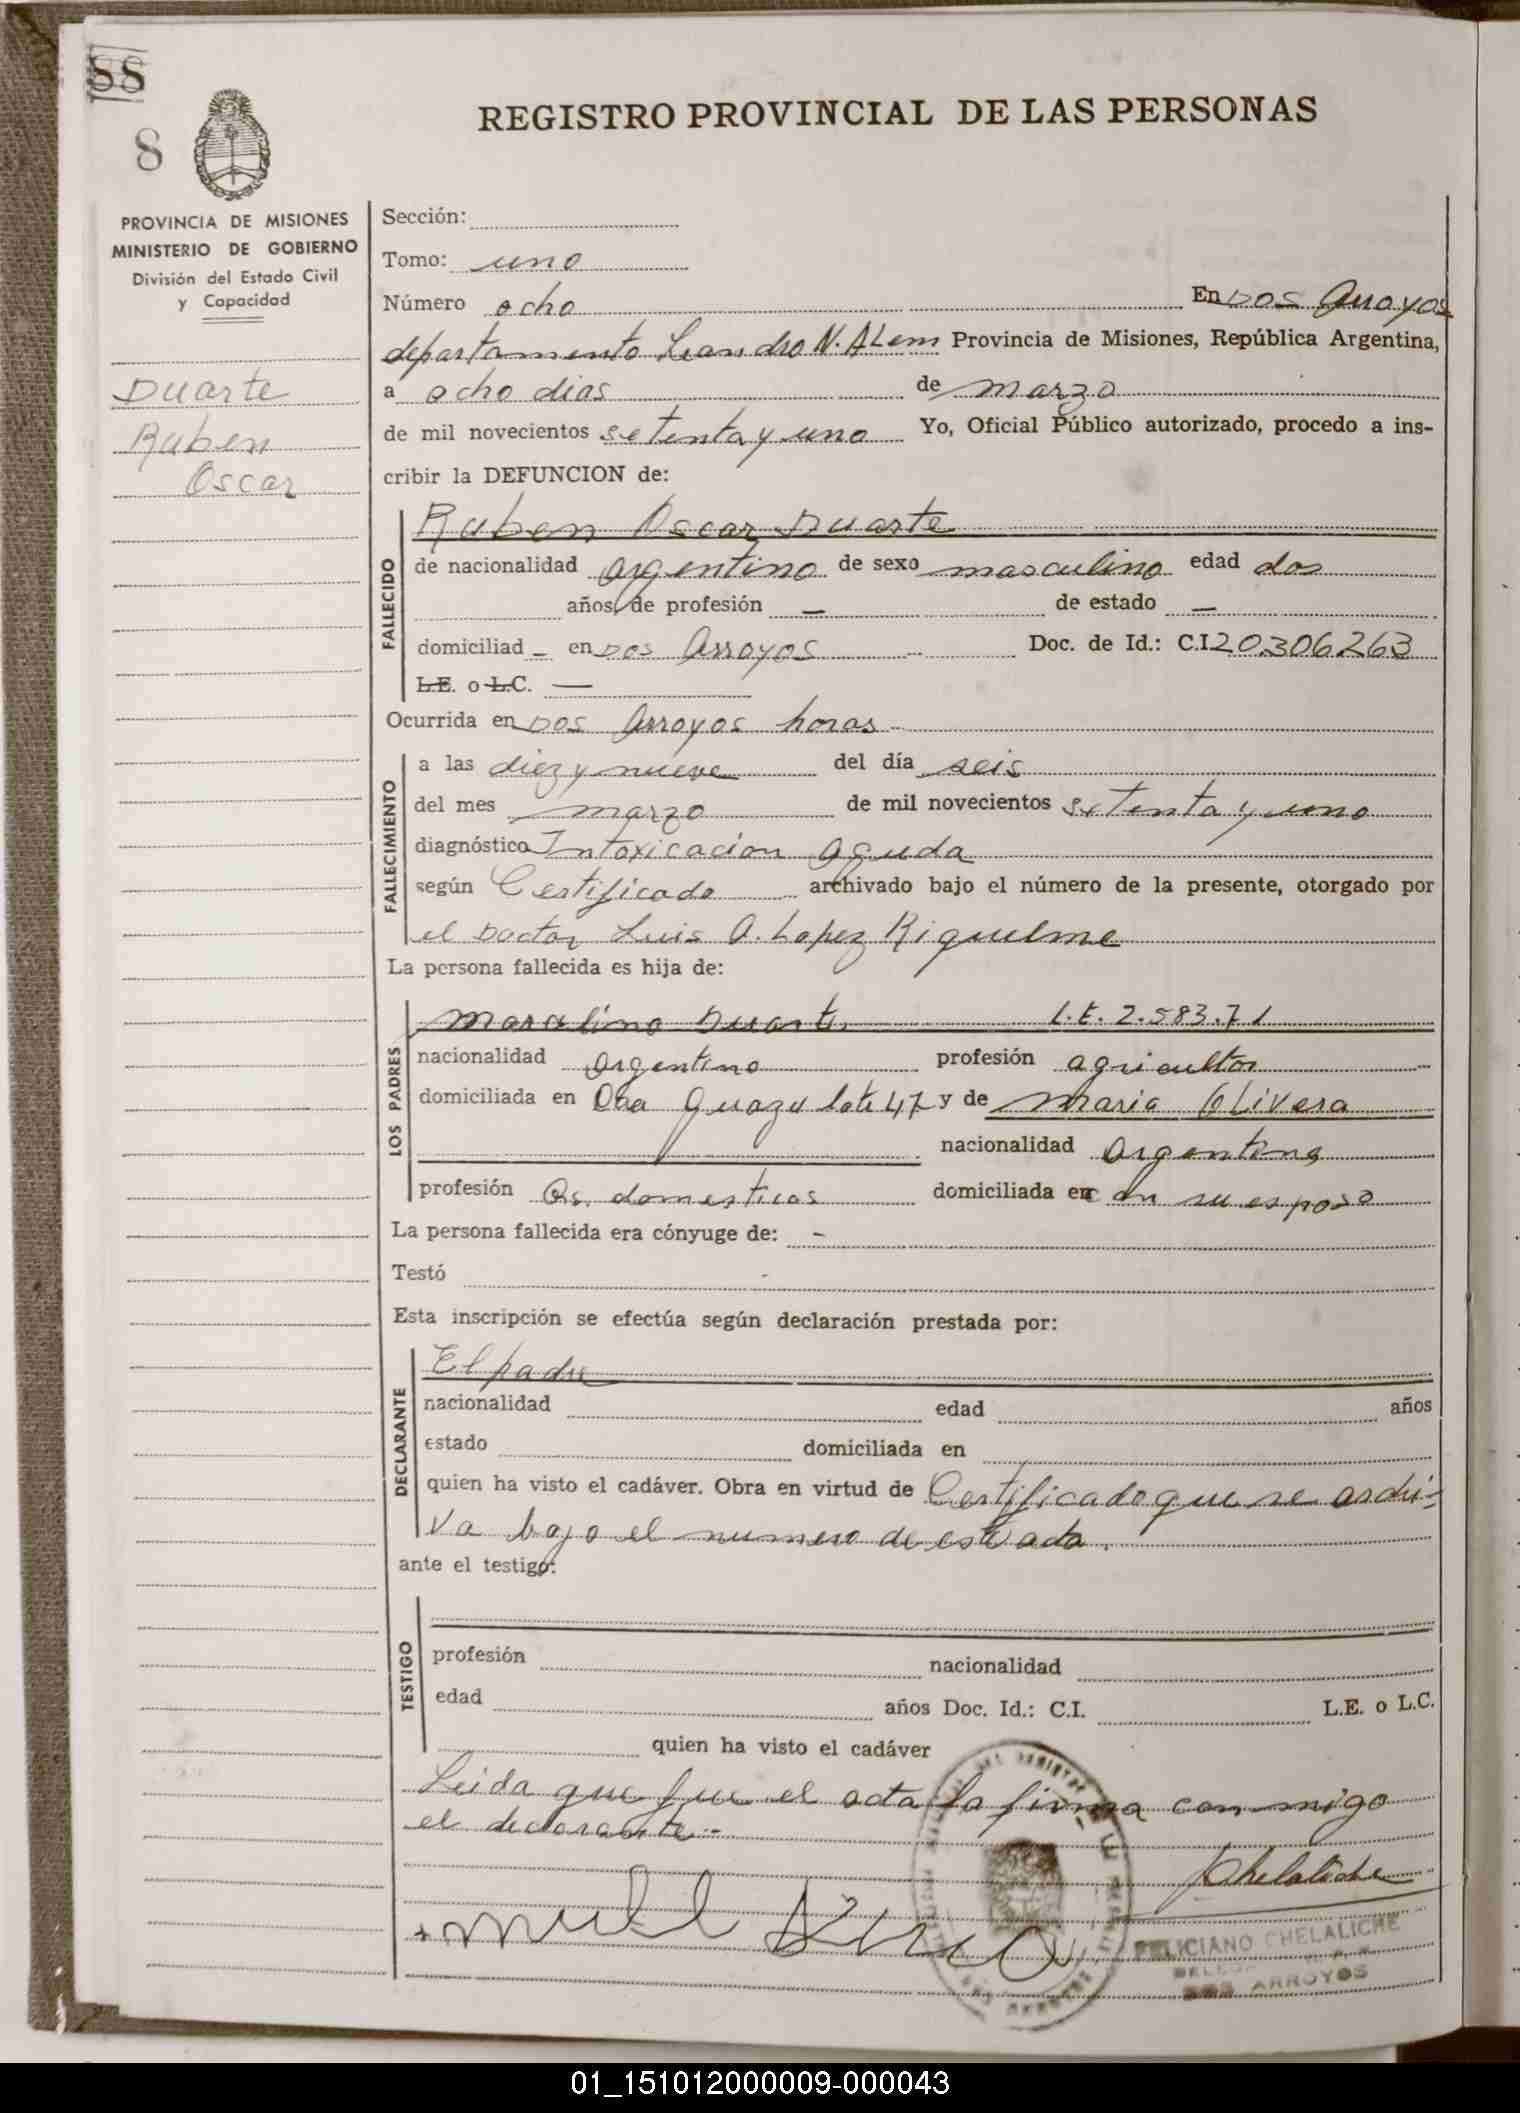 88
8
REGISTRO PROVINCIAL DE LAS PERSONAS
PROVINCIA DE MISIONES
MINISTERIO DE GOBIERNO
División del Estado Civil
y Capacidad
Duarte
Ruben
Oscar
Sección:
Tomo: uno
Número ocho En Dos Arroyos
departamento Leandro N. ALem Provincia de Misiones, República Argentina,
a ocho dias de marzo
de mil novecientos setenta y uno Yo, Oficial Público autorizado, procedo a ins-
cribir la DEFUNCION de:
FALLECIDO
Ruben Oscar Duarte
de nacionalidad argentino de sexo masculino edad dos
años, de profesión — de estado —
domiciliad - en Dos Arroyos Doc. de Id.: C.I. 20.306.263
L.E. o L.C. —
Ocurrida en Dos Arroyos horas
FALLECIMIENTO
a las diez y nueve del día seis
del mes marzo de mil novecientos setenta y uno
diagnóstico Intoxicacion aguda
según Certificado archivado bajo el número de la presente, otorgado por
el Doctor Luis A. Lopez Riquelme
La persona fallecida es hija de:
LOS PADRES
Marcelino Duarte L.E. 2.583.71
nacionalidad argentino profesión agricultor
domiciliada en guazu lote 47 y de Maria OLivera
nacionalidad argentina
profesión Qs. domesticos domiciliada en con su esposo
La persona fallecida era cónyuge de: -
Testó -
Esta inscripción se efectúa según declaración prestada por:
DECLARANTE
El padre
nacionalidad edad años
estado domiciliada en
quien ha visto el cadáver. Obra en virtud de Certificado que se archi-
va bajo el numero de esta acta.
ante el testigo:
TESTIGO
profesión nacionalidad
edad años Doc. Id.: C.I. L.E. o L.C.
quien ha visto el cadáver
Leida que fue el acta la firma con migo
el declarante.-
Chelaliche
FELICIANO CHELALICHE
DOS ARROYOS
01_151012000009-000043